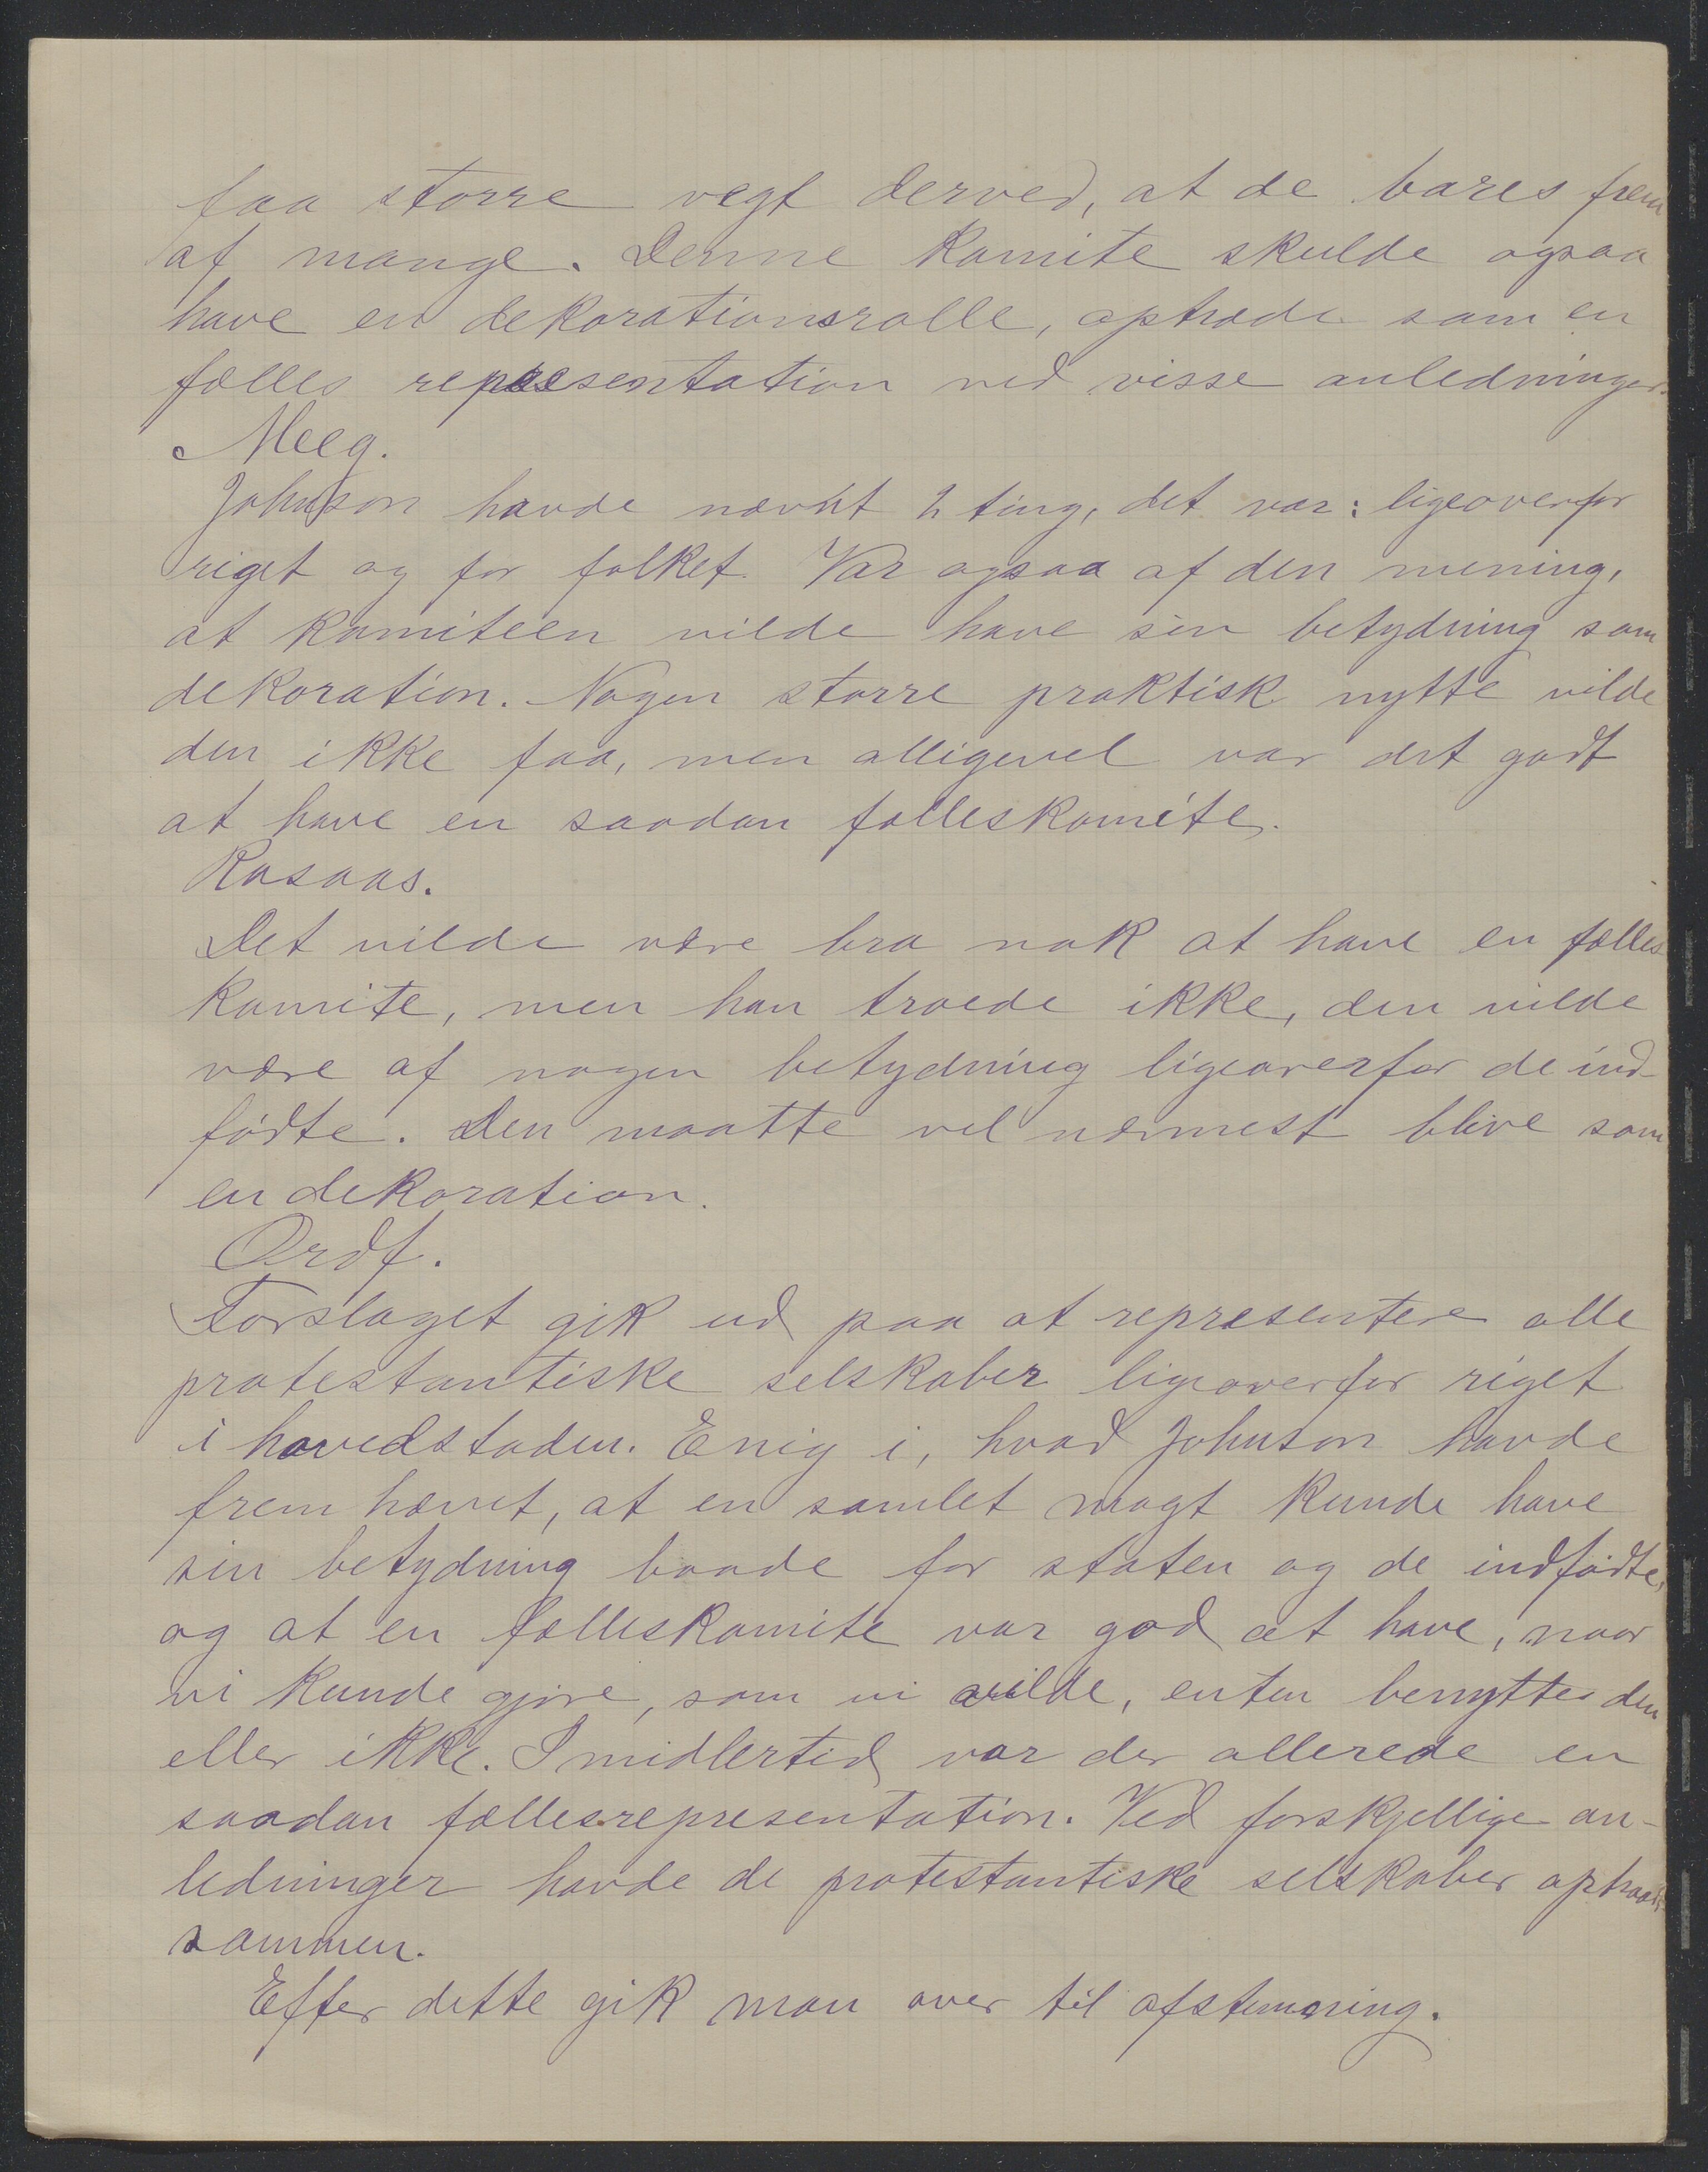 faa større vegt derved, at de bares frem
af mange. Denne Komite skulde ogsaa
have en dekorationsrolle, optræde som en
fælles repræsentation ved visse anledninger.
Meeg.
Johnson havde nævnt 2 ting, det var: ligeoverfor
riget og for folket. Var ogsaa af den mening,
at komiteen vilde have sin betydning som
dekoration. Nogen større praktisk nytte vilde
den ikke faa, men alligevel var det godt
at have en saadan felleskomite.
Rosaas.
Det vilde være bra nok at have en fælles
Komite, men han troede ikke, den vilde
være af nogen betydning ligeoverfor de ind-
fødte. Den maatte vel nærmest blive som
en dekoration.
Ordf.
Forslaget gik ud paa at repræsentere alle
protestantiske selskaber ligeoverfor riget
i hovedstaden. Enig i, hvad Johnson havde
frem hævet, at en samlet magt kunde have
sin betydning baade for staten og de indfødte,
og at en fælleskomite var god at have, naar
vi kunde gjøre, som vi vilde, enten benytte den
eller ikke. Imidlertid var der allerede en
saadan fællesrepresentation. Ved forskjellige an-
ledninger havde de protestantiske selskaber optraadt
sammen.
Efter dette gik man over til afstemning.